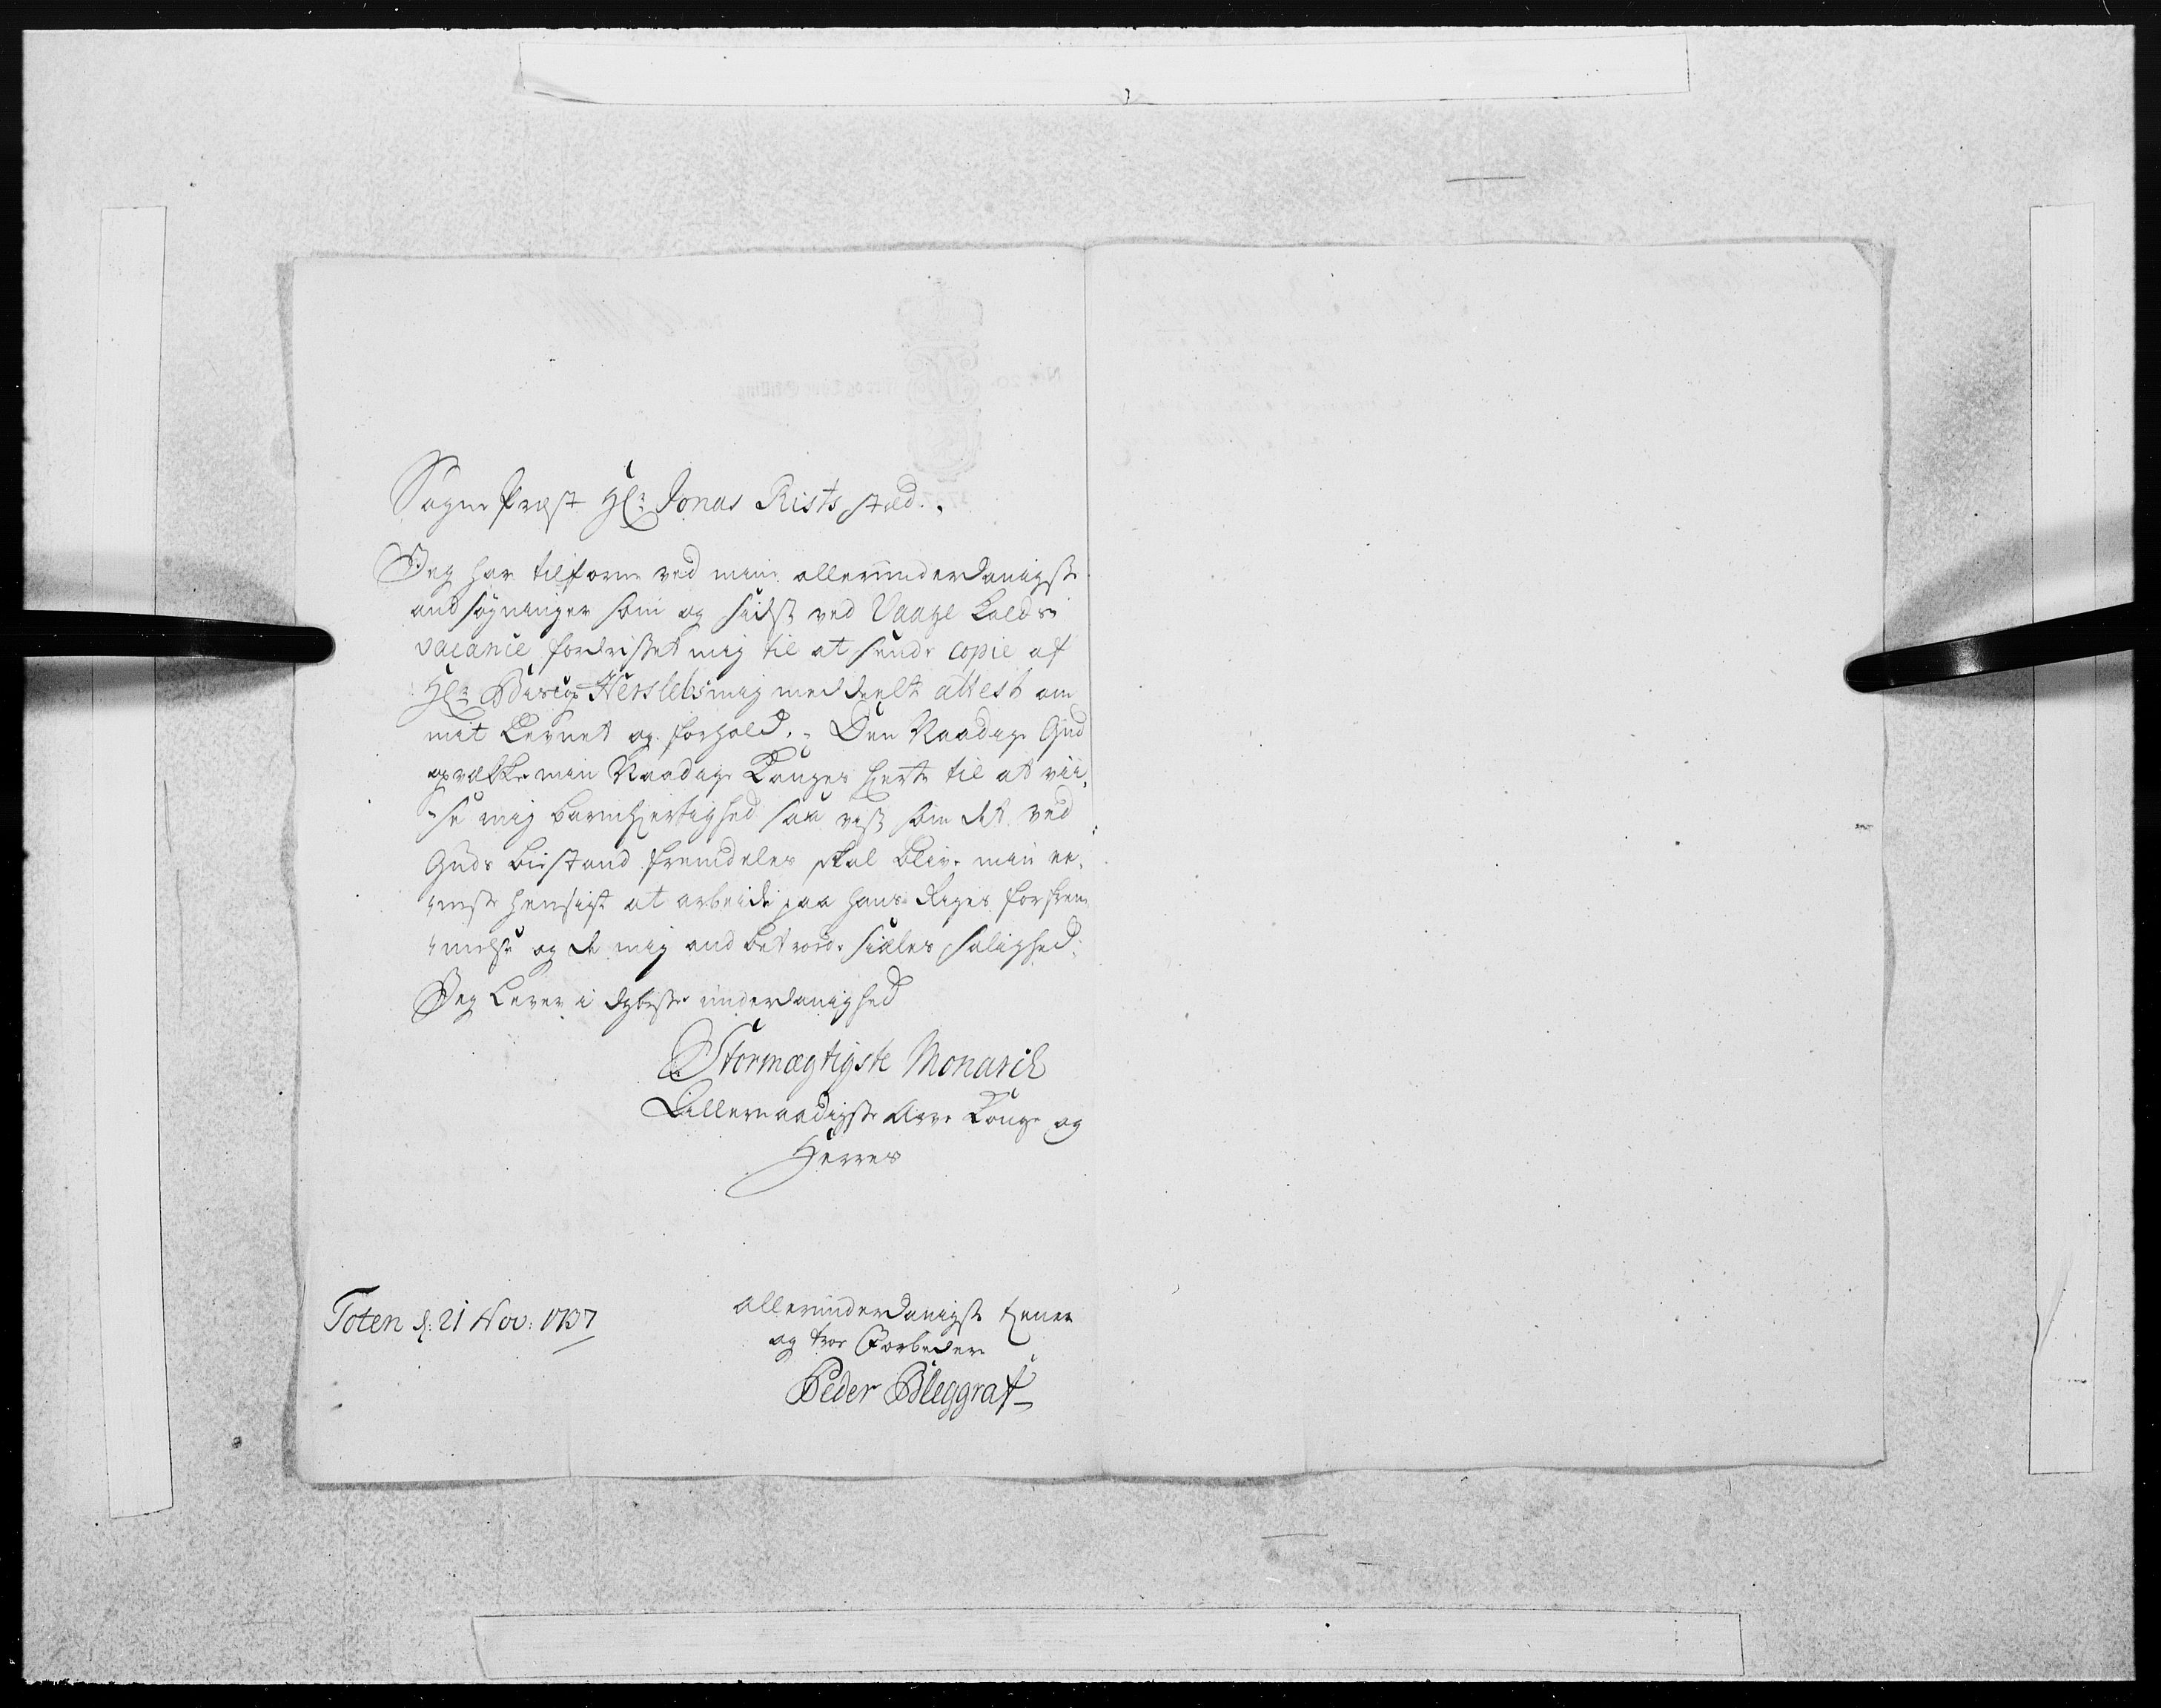 Sogne Præst Hr: Jonas Rists stæd.
Jeg har tilforne ved min allerunderdanigste
andsøgninger som og sidst ved Vaage Kalds
vacance fordristet mig til at sende copie af
Hr: Biscop Herslebs mig meddeelte attest om
mit Levnet og forhold. Den Naadige Gud
opvække min Naadige Konges hierte til at vii-
-se mig barmhiertighed saa vist som det ved
Guds biistand fremdeles skal blive min ee-
-neste hensigt at arbeide paa hans Riges forfrem
-melse og de mig andbetroede siæles salighed.
Jeg Lever i dybeste underdanighed
Stormægtigste Monarch
Allernaadigste Arve Konge og
Herres
Toten d: 21 Nov: 1737
allerunderdanigste tiener
og troe Forbeder
Peder Bleggraf